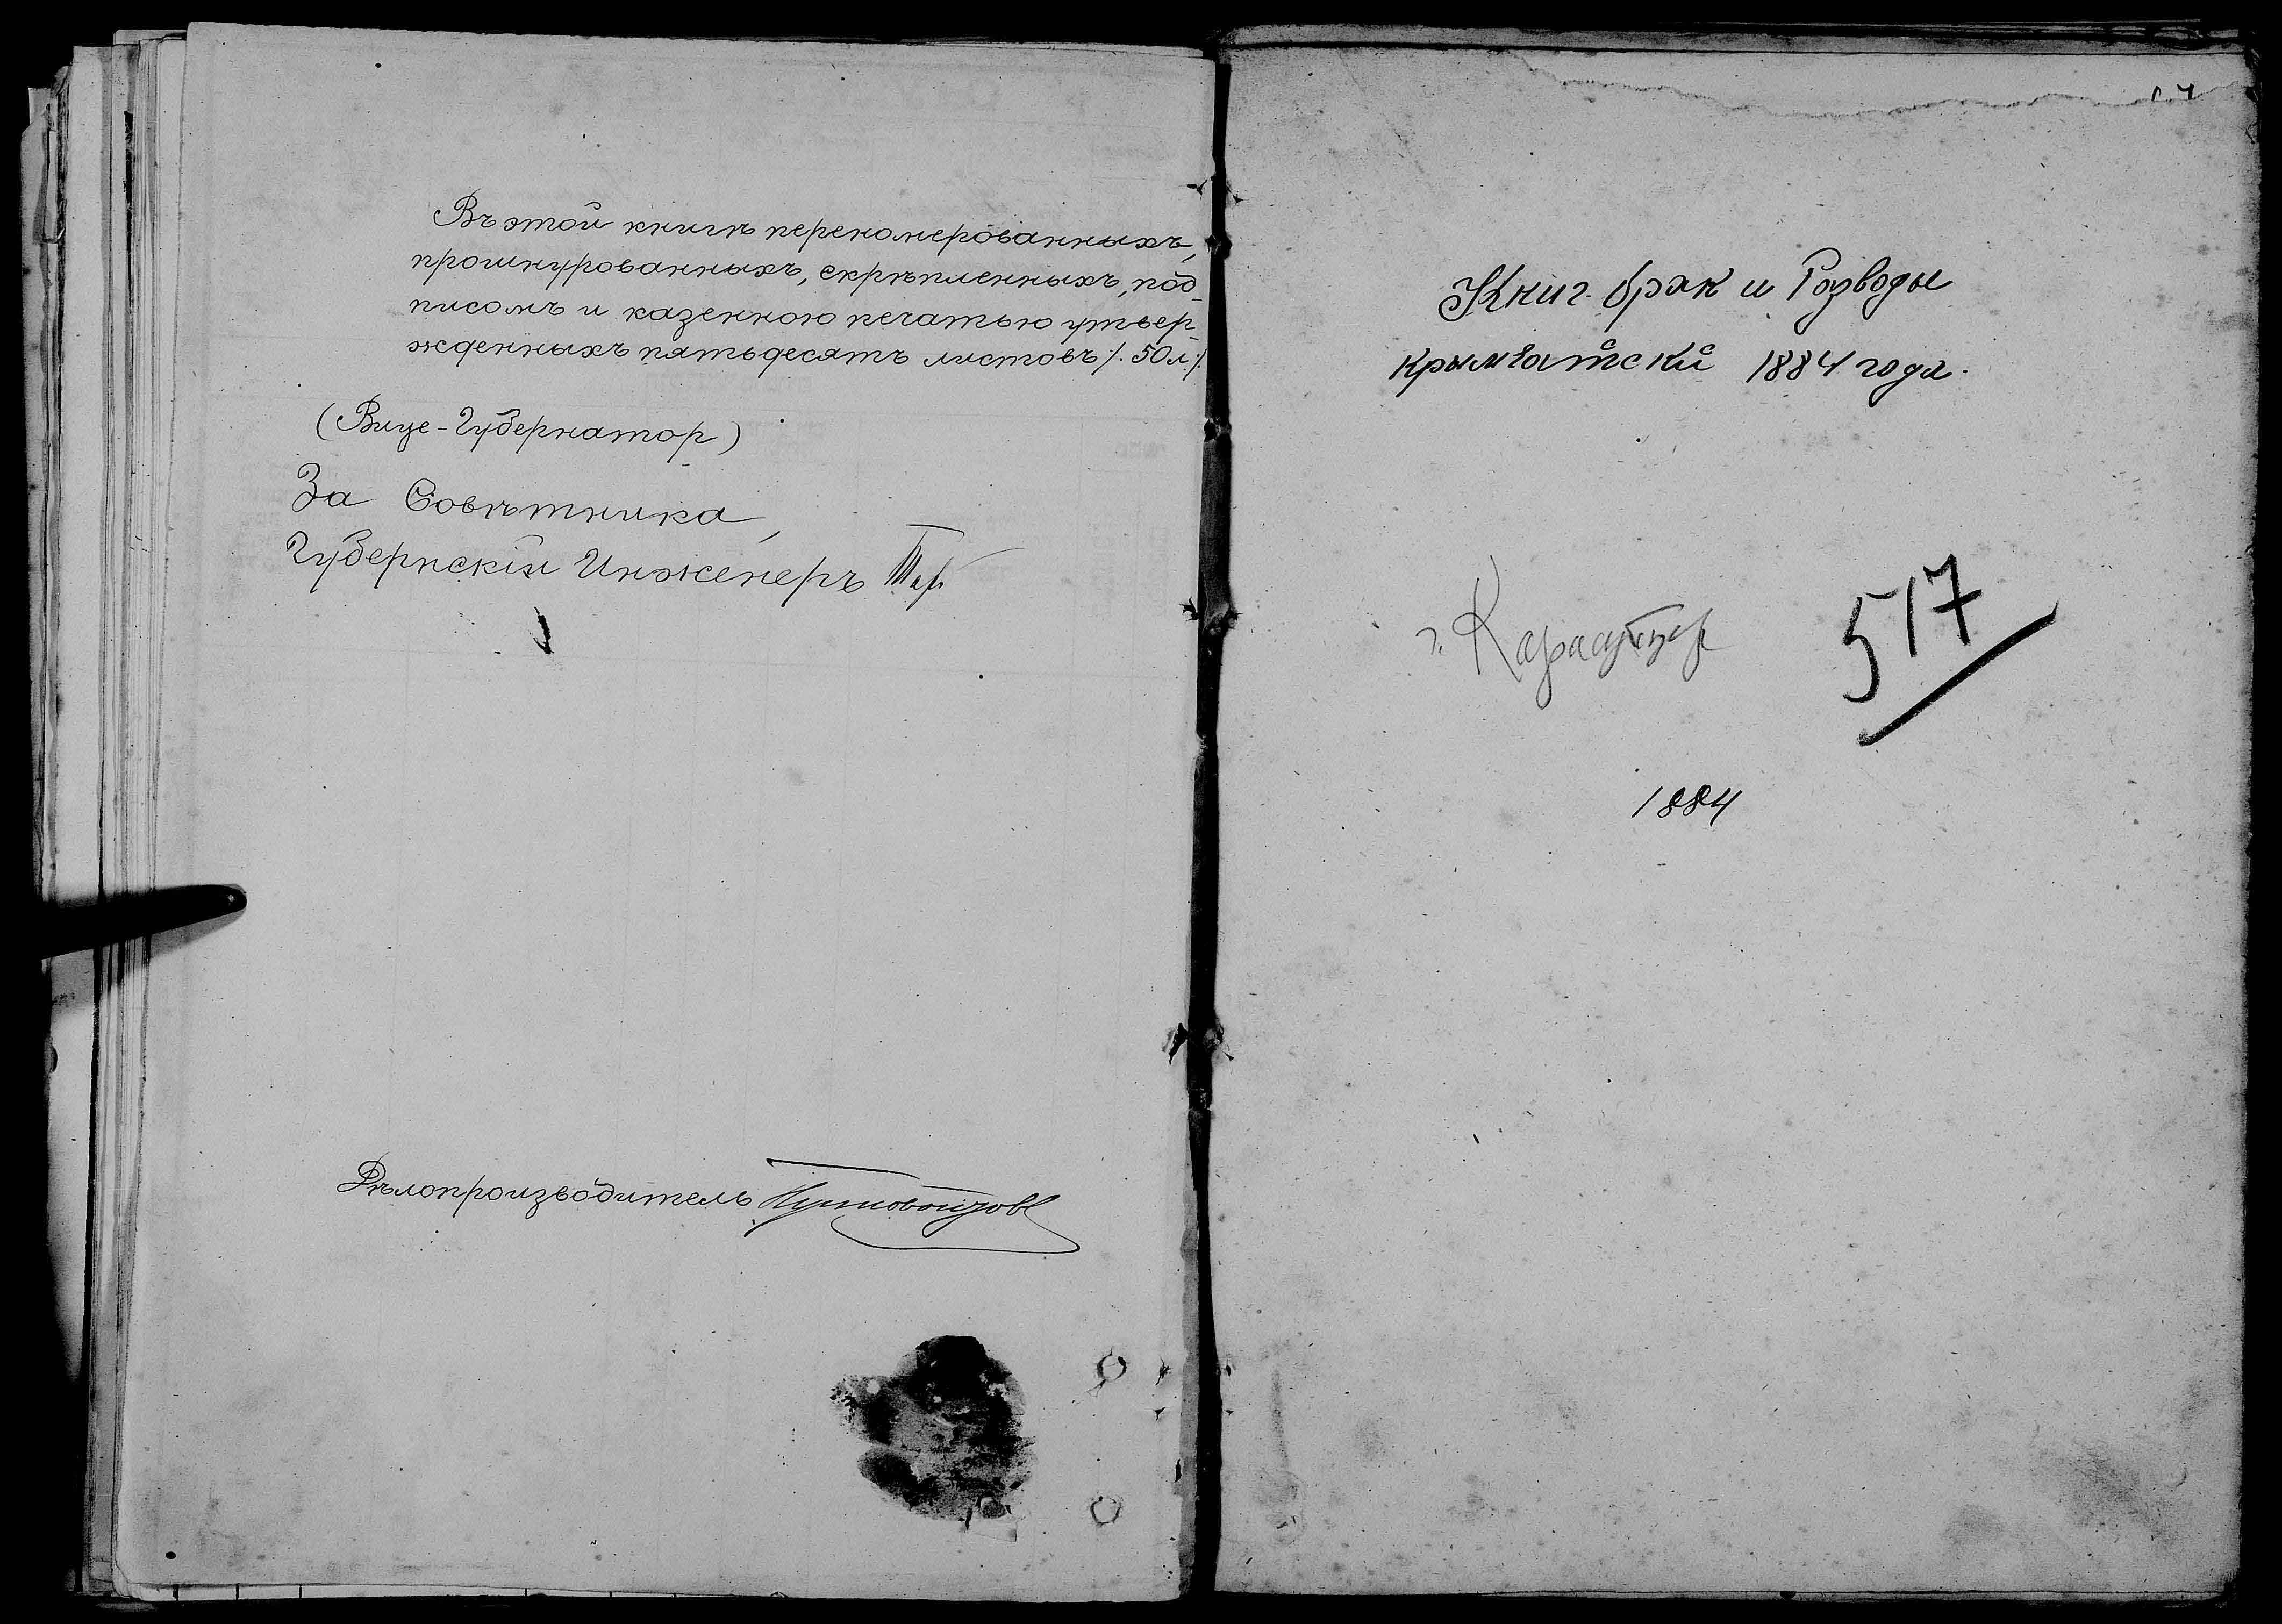 Въ этой книгѣ перекомерованныхъ,
прошнурованныхъ, скрѣпленныхъ, под-
писомъ и казенною печатью утвер
жденныхъ пятьдесятъ листовъ /. 50 л. /.
(Вице-Губернатор)
За Совѣтника,
Губернскій Инженеръ
Дѣлопроизводитель
Книг. брак и Розводы
1884 года.
г. Карасубазар
517
1884